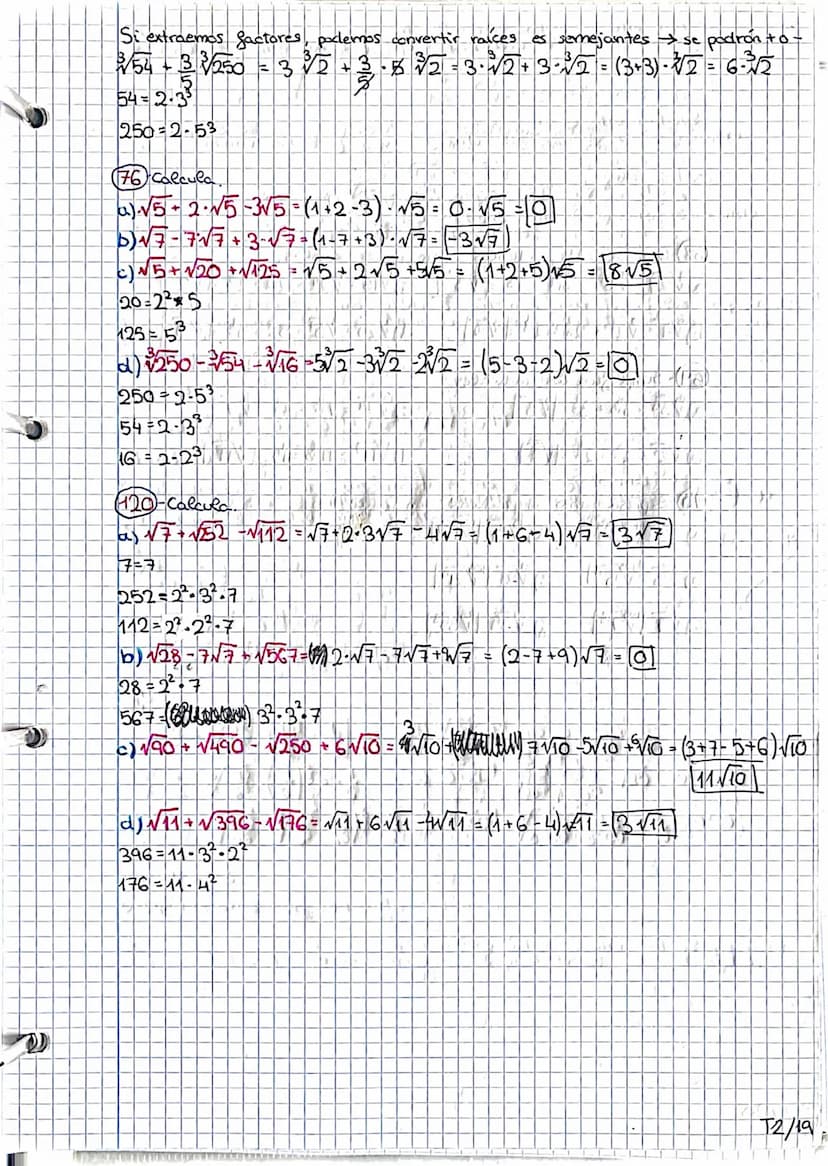 Si extraemos factores, podemos convertir raíces es semejantes → se podrán + o -
∛54 + 3/5 ∛250 = 3 ∛2 + 3/5 · 5 ∛2 = 3 · ∛2 + 3 · ∛2 = (3+3) · ∛2 = 6 · ∛2
54 = 2 · 3³
250 = 2 · 5³
76 - Calcula.
a) √5 + 2 · √5 - 3√5 = (1+2-3) · √5 = 0 · √5 = 0
b) √7 - 7·√7 + 3·√7 = (1-7+3) · √7 = -3√7
c) √5 + √20 + √125 = √5 + 2√5 + 5√5 = (1+2+5)√5 = 8√5
20 = 2² * 5
125 = 5³
d) ∛250 - ∛54 - ∛16 = 5∛2 - 3∛2 - 2∛2 = (5-3-2)√2 = 0
250 = 2·5³
54 = 2·3³
16 = 2·2³
120 - Calcula.
a) √7 + √252 - √112 = √7 + 2·3√7 - 4√7 = (1+6-4)√7 = 3√7
7 = 7
252 = 2² · 3² · 7
112 = 2² · 2² · 7
b) √28 - 7√7 + √567 = 2·√7 - 7√7 + 9√7 = (2-7+9)√7 = 0
28 = 2² · 7
567 = 3² · 3² · 7
c) √90 + √490 - √250 + 6√10 = 3√10 + 7√10 - 5√10 + 6√10 = (3+7-5+6)√10
11√10
d) √11 + √396 - √176 = √11 + 6√11 - 4√11 = (1+6-4)√11 = 3√11
396 = 11 · 3² · 2²
176 = 11 · 4²
T2/19